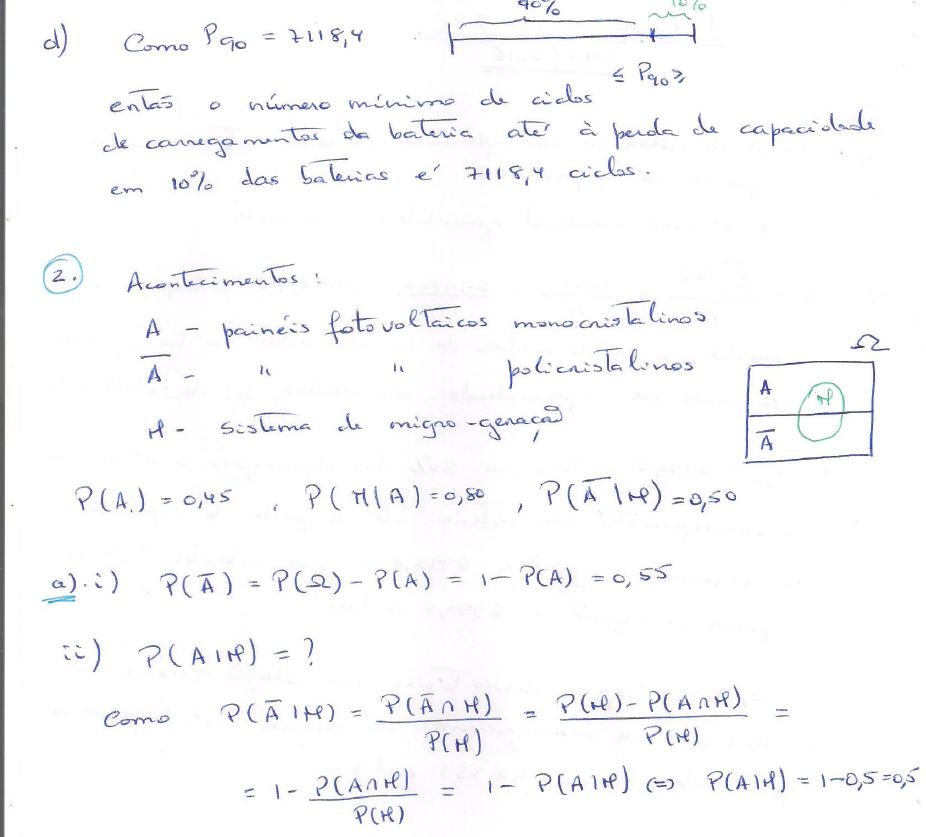 90% 10%
d) Como P90 = 7118,4
≤ P90 ≥
então o número mínimo de ciclos
de carregamentos da bateria até à perda de capacidade
em 10% das baterias é 7118,4 ciclos.
2. Acontecimentos:
A - painéis fotovoltaicos monocristalinos
Ω
A̅ - " " policristalinos
A M
M - sistema de migro-geração
A̅
P(A) = 0,45 , P(M|A) = 0,80 , P(A̅|M) = 0,50
a). i) P(A̅) = P(Ω) - P(A) = 1 - P(A) = 0,55
ii) P(A|M) = ?
Como P(A̅|M) = P(A̅∩M)/P(M) = P(M) - P(A∩M)/P(M) =
= 1 - P(A∩M)/P(M) = 1 - P(A|M) (=) P(A|M) = 1-0,5=0,5